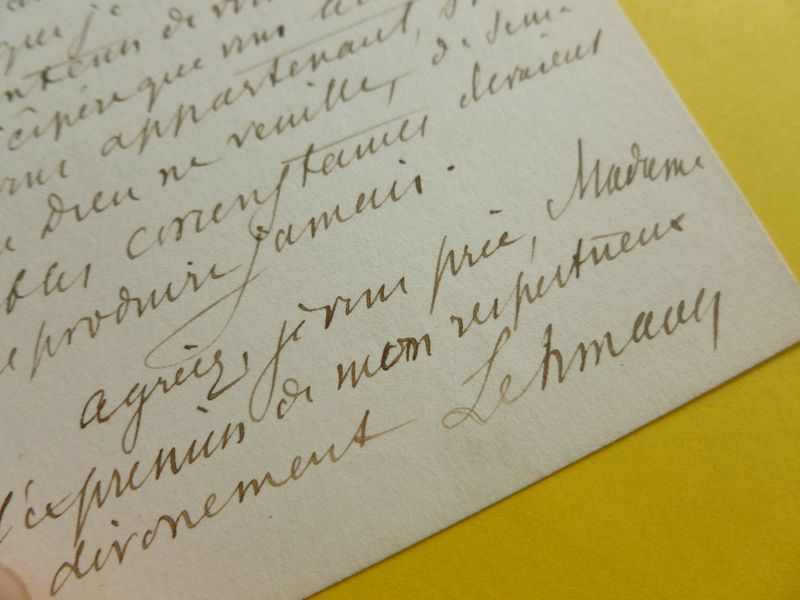 que je
de vous
j'espère que vous
vous appartenant,
Dieu ne veuille, de sem-
blables circonstances devaient
se produire jamais.
agréez, je vous prie, Madame
l'expression de mon respectueux
dévouement Lehmann